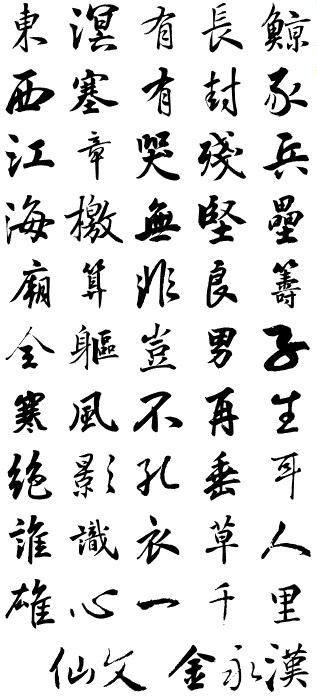 東溟有長鯨
西塞有封豕
江章哭殘兵
海檄無堅壘
廟算非良籌
全軀豈男子
寒風不再生
絶影孔垂耳
誰識衣草人
雄心一千里
仙文 金永漢